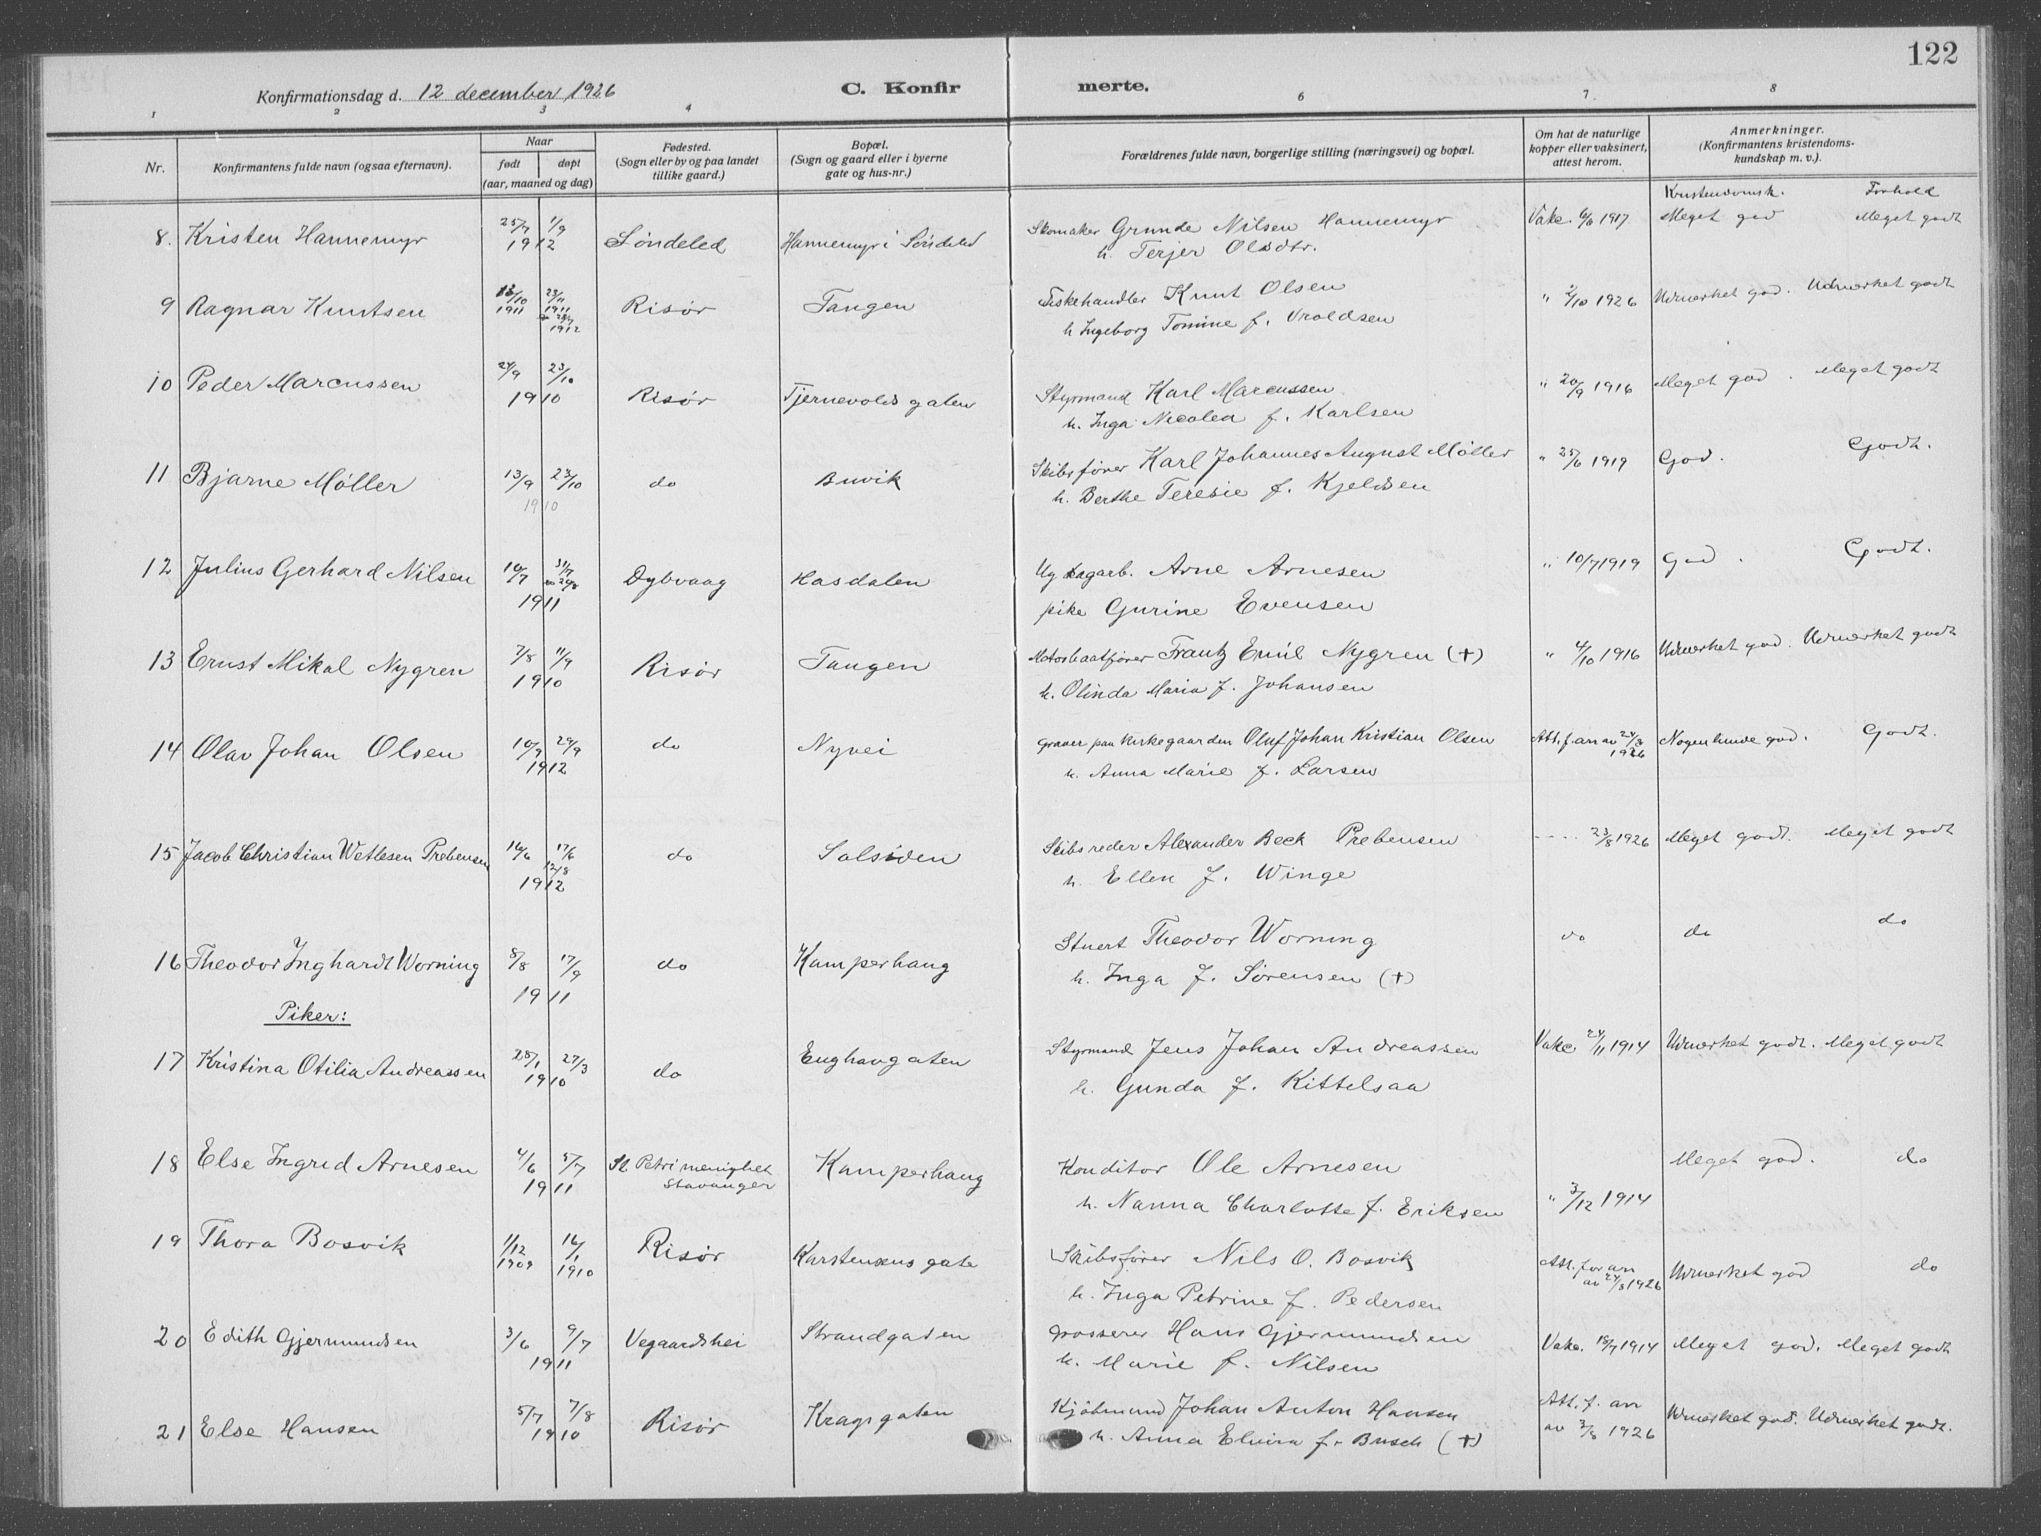 122
Konfirmationsdag d. 12 december 1926 C. Konfir merte.
1 2 3 4 6 7 8
Nr. Konfirmantens fulde navn (ogsaa efternavn). Naar født døpt (aar, maaned og dag) Fødested. (Sogn eller by og paa landet tillike gaard.) Bopæl. (Sogn og gaard eller i byerne gate og hus-nr.) Forældrenes fulde navn, borgerlige stilling (næringsvei) og bopæl. Om hat de naturlige kopper eller vaksinert, attest herom. Anmerkninger. (Konfirmantens kristendoms- kundskap m. v.).
Kristendomsk. Forhold
8. Kristen Hannemyr 25/7 1/9 1912 Søndeled Hannemyr i Søndeled Skomaker Grunde Nilsen Hannemyr Vakc. 6/6 1917 Meget god Meget godt
h. Terjer Olsdtr.
9 Ragnar Knutsen 13/10 1911 23/11 1911 28/7 1912 Risør Tangen Fiskehandler Knut Olsen " 2/10 1926 Udmerket god. Udmerket godt
h Ingeborg Tomine f. Vroldsen
10 Peder Marcussen 24/9 23/10 1910 Risør Tjernevolds gaten Styrmand Karl Marcussen " 20/9 1916 Meget god. Meget godt
h. Inga Nicolea f. Karlsen
11 Bjarne Møller 13/9 23/10 1910 do Buvik Skibsfører Karl Johannes August Møller " 25/6 1919 God. Godt.
h. Berthe Teresie f. Kjeldsen
12 Julius Gerhard Nilsen 16/7 31/7 1911 Dybvaag Hasdalen Ug dagarb. Arne Arnesen " 10/7 1919 God. Godt.
pike Gurine Evensen
13 Ernst Mikal Nygren 7/8 11/9 1910 Risør Tangen Motorbaatfører Frantz Emil Nygren (+) " 4/10 1916 Udmerket god. Udmerket godt
h. Olinda Maria f. Johansen
14 Olav Johan Olsen 10/9 29/9 1912 do Nyvei Graver paa kirkegaarden Oluf Johan Kristian Olsen Att. f. an av 24/8 1926 Nogenlunde god. Godt.
h. Anna Marie f. Larsen
15 Jacob Christian Wetlesen Prebensen 16/6 17/6 12/8 1912 do Solsiden Skibsreder Alexander Beck Prebensen 23/8 1926 Meget godt. Meget godt
h. Ellen f. Winge
16 Theodor Inghardt Worning 8/8 17/9 1911 do Kamperhaug Stuert Theodor Worning do do do
h. Inga f. Sørensen (+)
Piker:
17 Kristina Otilia Andreassen 25/1 27/3 1910 do Enghavgaten Styrmand Jens Johan Andreassen Vakc. 24/11 1914 Udmerket godt. Meget godt
h. Gunda f. Kittelsaa
18 Else Ingrid Arnesen 4/6 5/7 1911 St. Petri menighet Stavanger Kamperhaug Konditor Ole Arnesen Meget god. do
h. Nanna Charlotte f. Eriksen " 3/12 1914
19 Thora Bosvik 1/12 1909 16/1 1910 Risør Karstensens gate Skibsfører Nils O. Bosvik Att. for an av 24/8 1926 Udmerket god do
h. Inga Petrine f. Pedersen
20 Edith Gjermundsen 3/6 9/7 1911 Vegaardshei Strandgaten Grosserer Hans Gjermundsen Vakc. 18/7 1914 Meget god. Meget godt
h. Marie f. Nilsen
21 Else Hansen 5/7 7/8 1910 Risør Kragsgaten Kjøbmand Johan Anton Hansen Att. f. an av 3/8 1926 Udmerket god. Udmerket godt.
h. Anna Elvira f. Busch (+)